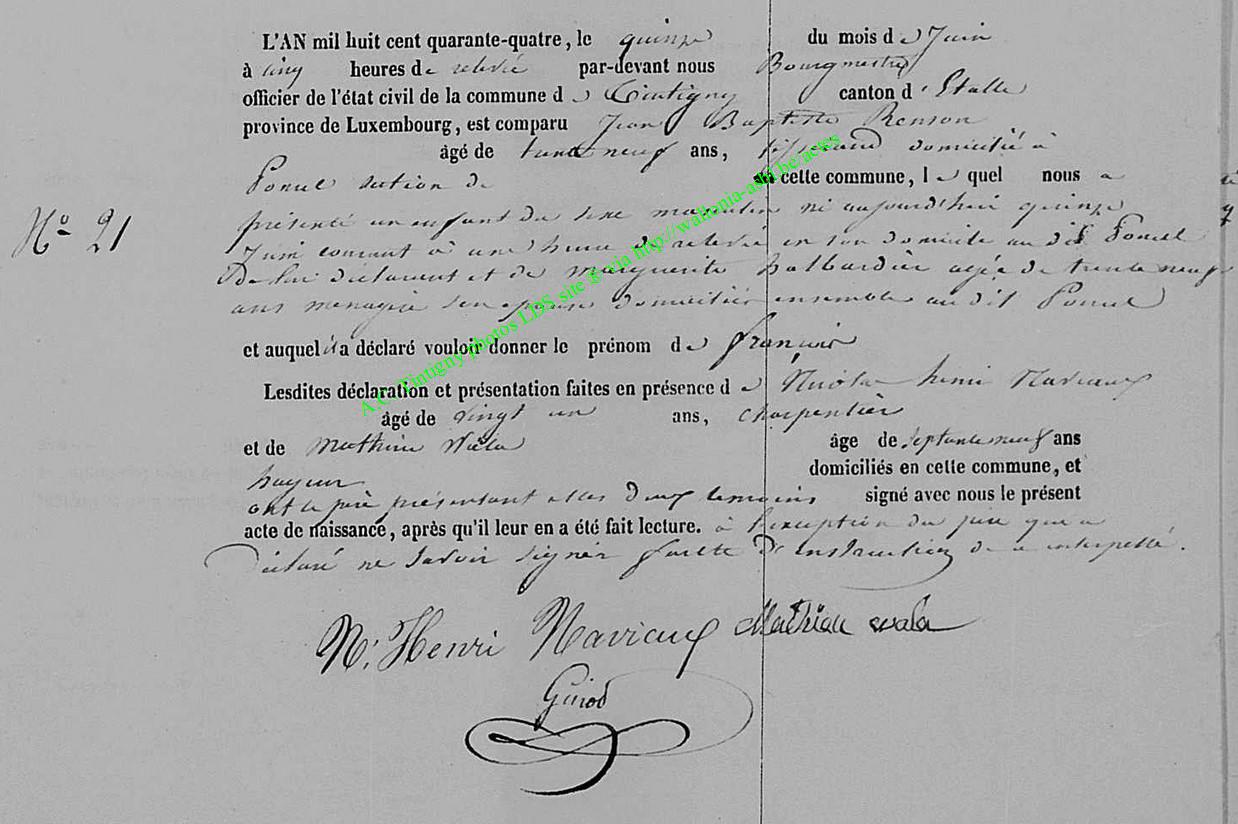 L'AN mil huit cent quarante-quatre, le quinze du mois de Juin
à cinq heures de relevé par-devant nous Bourgmestre
officier de l'état civil de la commune de Tintigny canton d'Etalle
province de Luxembourg, est comparu Jean Baptiste Renson
âgé de trente neuf ans, tisserand domicilié à
Poncel section de cette commune, lequel nous a
N° 21
présenté un enfant du sexe masculin né aujourd'hui quinze
Juin courant à une heure de relevé en son domicile au dit Poncel
De lui déclarant et de marguerite halbardier agée de trente neuf
ans menagère son epouse domiciliés ensemble au dit Poncel
et auquel il a déclaré vouloir donner le prénom de françois
Lesdites déclaration et présentation faites en présence de Nicolas henri Naviaux
âgé de vingt un ans, charpentier
et de Mathieu Wala âge de septante neuf ans
domiciliés en cette commune, et
ont le père présentant et les deux temoins signé avec nous le présent
acte de naissance, après qu'il leur en a été fait lecture. à l'exception du père qui a
Déclaré ne savoir signer faute d'instruction de ce interpellé.
N. Henri Naviaux Mathieu wala
A.C. Tintigny photos LDS site ® via http://wallonia-asbl.be/actes